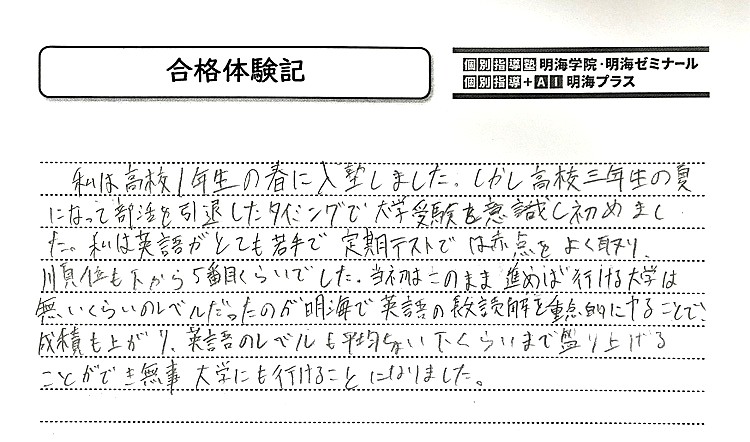 合格体験記
個別指導塾 明海学院・明海ゼミナール
個別指導+AI 明海プラス
私は高校1年生の春に入塾しました。しかし高校三年生の夏
になって部活を引退したタイミングで大学受験を意識し初めまし
た。私は英語がとても苦手で定期テストでは赤点をよく取り、
順位も下から5番目くらいでした。当初はこのまま進めば行ける大学は
無いくらいのレベルだったのが明海で英語の長文読解を重点的にやることで、
成績も上がり、英語のレベルも平均ちょい下くらいまで盛り上げる
ことができ無事大学にも行けることになりました。